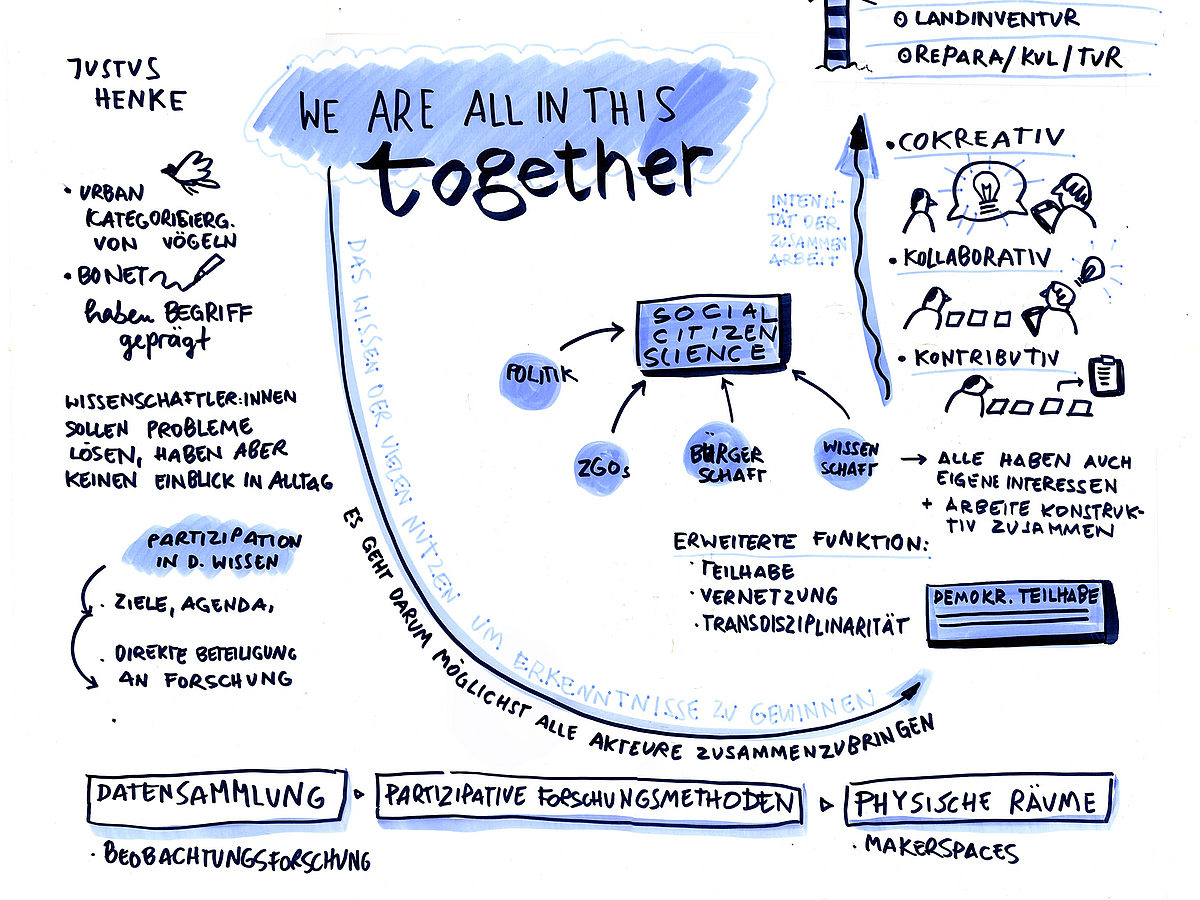 JUSTUS
HENKE
WE ARE ALL IN THIS
together
• LANDINVENTUR
• REPARA/KUL/TUR
• URBAN
KATEGORISIERG.
VON VÖGELN
• BONET
haben BEGRIFF
geprägt
WISSENSCHAFTLER:INNEN
SOLLEN PROBLEME
LÖSEN, HABEN ABER
KEINEN EINBLICK IN ALLTAG
PARTIZIPATION
IN D. WISSEN
• ZIELE, AGENDA,
• DIREKTE BETEILIGUNG
AN FORSCHUNG
DAS WISSEN DER VIELEN NUTZEN UM ERKENNTNISSE ZU GEWINNEN
ES GEHT DARUM MÖGLICHST ALLE AKTEURE ZUSAMMENZUBRINGEN
SOCIAL
CITIZEN
SCIENCE
POLITIK
ZGOs
BÜRGER
SCHAFT
WISSEN
SCHAFT
→ ALLE HABEN AUCH
EIGENE INTERESSEN
+ ARBEITE KONSTRUK-
TIV ZUSAMMEN
INTENSI-
TÄT DER
ZUSAMMEN
ARBEIT
• COKREATIV
• KOLLABORATIV
• KONTRIBUTIV
ERWEITERTE FUNKTION:
• TEILHABE
• VERNETZUNG
• TRANSDISZIPLINARITÄT
DEMOKR. TEILHABE
DATENSAMMLUNG ▷ PARTIZIPATIVE FORSCHUNGSMETHODEN ▷ PHYSISCHE RÄUME
• BEOBACHTUNGSFORSCHUNG
• MAKERSPACES